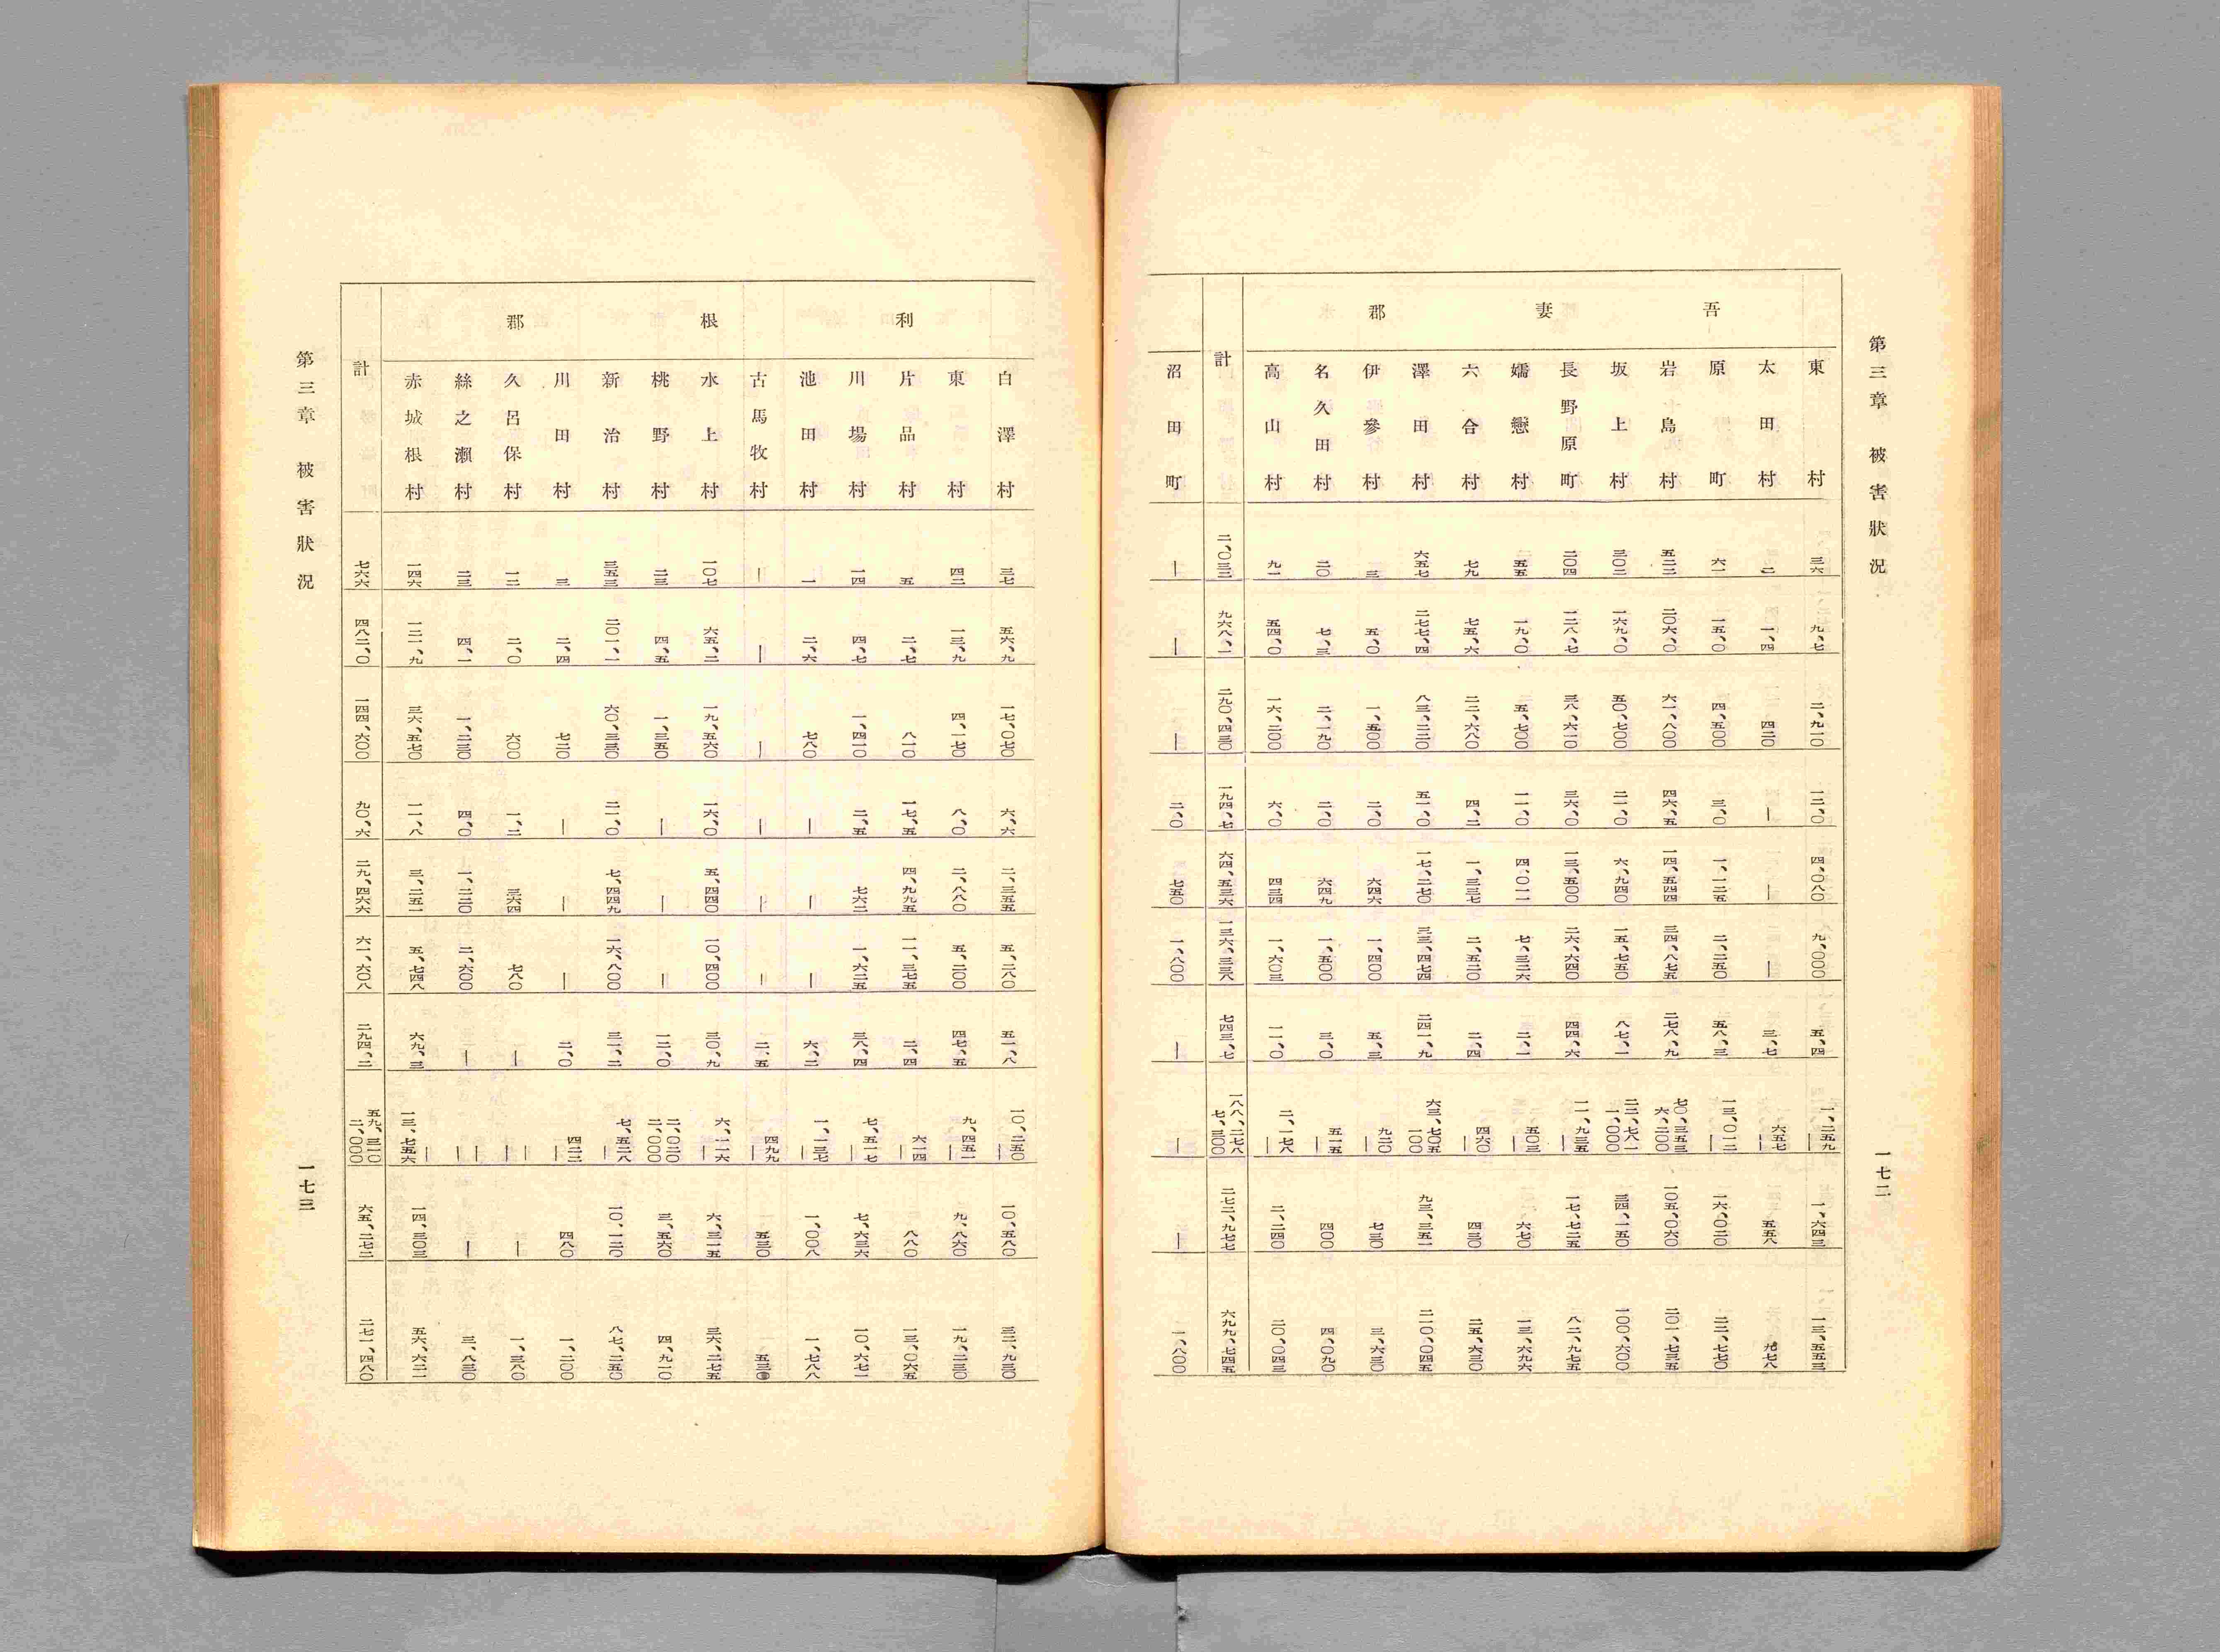 第三章 被害狀況
一七二
吾妻郡
東村 三六 九、七 二、九一〇 一二、〇 四、〇八〇 九、〇〇〇 五、四 一、二五九 ― 一、六四三 一三、五五三
太田村 二 一、四 四二〇 ― ― ― 三、七 六五七 ― 五五八 九七八
原町 六一 一五、〇 四、五〇〇 三、〇 一、一二五 二、二五〇 五八、三 一三、〇一二 ― 一六、〇二〇 二二、七七〇
岩島村 五二二 二〇六、〇 六一、八〇〇 四六、五 一四、五四四 三四、八七五 二七八、九 七〇、三五三 六、二〇〇 一〇五、〇六〇 二〇一、七三五
坂上村 三〇二 一六九、〇 五〇、七〇〇 二一、〇 六、九四〇 一五、七五〇 八七、一 二二、七八一 一、〇〇〇 三四、一五〇 一〇〇、六〇〇
長野原町 二〇四 一二八、七 三八、六一〇 三六、〇 一三、五〇〇 二六、六四〇 四四、六 一一、九三五 ― 一七、七二五 八二、九七五
嬬戀村 五五 一九、〇 五、七〇〇 一一、〇 四、〇一一 七、三二六 二、一 五〇三 ― 六七〇 一三、六九六
六合村 七九 七五、六 二二、六八〇 四、二 一、三三七 二、五二〇 二、四 四六〇 ― 四三〇 二五、六三〇
澤田村 六五七 二七七、四 八三、二二〇 五一、〇 一七、二七〇 三三、四七四 二四一、九 六三、七〇五 一〇〇 九三、三五一 二一〇、〇四五
伊參村 三 五、〇 一、五〇〇 二、〇 六四六 一、四〇〇 五、三 九二〇 ― 七三〇 三、六三〇
名久田村 二〇 七、三 二、一九〇 二、〇 六四九 一、五〇〇 三、〇 五一五 ― 四〇〇 四、〇九〇
高山村 九一 五四、〇 一六、二〇〇 六、〇 四三四 一、六〇三 一一、〇 二、一七八 ― 二、二四〇 二〇、〇四三
計 二、〇三二 九六八、一 二九〇、四三〇 一九四、七 六四、五三六 一三六、三三八 七四三、七 一八八、二七八 七、三〇〇 二七二、九七七 六九九、七四五
沼田町 ― ― ― 二、〇 七五〇 一、八〇〇 ― ― ― 一、八〇〇
利根郡
白澤村 三七 五六、九 一七、〇七〇 六、六 二、三五五 五、二八〇 五一、八 一〇、二五〇 ― 一〇、五八〇 三二、九三〇
東村 四二 一三、九 四、一七〇 八、〇 二、八八〇 五、二〇〇 四七、五 九、四五一 ― 九、八六〇 一九、二三〇
片品村 五 二、七 八一〇 一七、五 四、九九五 一一、三七五 二、四 六一四 ― 八八〇 一三、〇六五
川場村 一四 四、七 一、四一〇 二、五 七六二 一、六二五 三八、四 七、五一七 ― 七、六三六 一〇、六七一
池田村 一 二、六 七八〇 ― ― ― 六、二 一、一三七 ― 一、〇〇八 一、七八八
古馬牧村 ― ― ― ― ― ― 二、五 四九九 ― 五三〇 五三〇
水上村 一〇七 六五、二 一九、五六〇 一六、〇 五、四四〇 一〇、四〇〇 三〇、九 六、一一六 ― 六、三一五 三六、二七五
桃野村 二三 四、五 一、三五〇 ― ― ― 一二、〇 二、〇二〇 二、〇〇〇 三、五六〇 四、九一〇
新治村 三五三 二〇一、一 六〇、三三〇 二一、〇 七、四四九 一六、八〇〇 三一、二 七、五二八 ― 一〇、一二〇 八七、二五〇
川田村 三 二、四 七二〇 ― ― ― 二、〇 四二二 ― 四八〇 一、二〇〇
久呂保村 一二 二、〇 六〇〇 一、二 三六四 七八〇 ― ― ― ― 一、三八〇
絲之瀨村 二三 四、一 一、二三〇 四、〇 一、二二〇 二、六〇〇 ― ― ― ― 三、八三〇
赤城根村 一四六 一二一、九 三六、五七〇 一一、八 三、二五一 五、七四八 六九、三 一三、七五六 ― 一四、三〇三 五六、六二一
計 七六六 四八二、〇 一四四、六〇〇 九〇、六 二九、四六六 六一、六〇八 二九四、二 五九、三一〇 二、〇〇〇 六五、二七二 二七一、四八〇
第三章 被害狀況
一七三